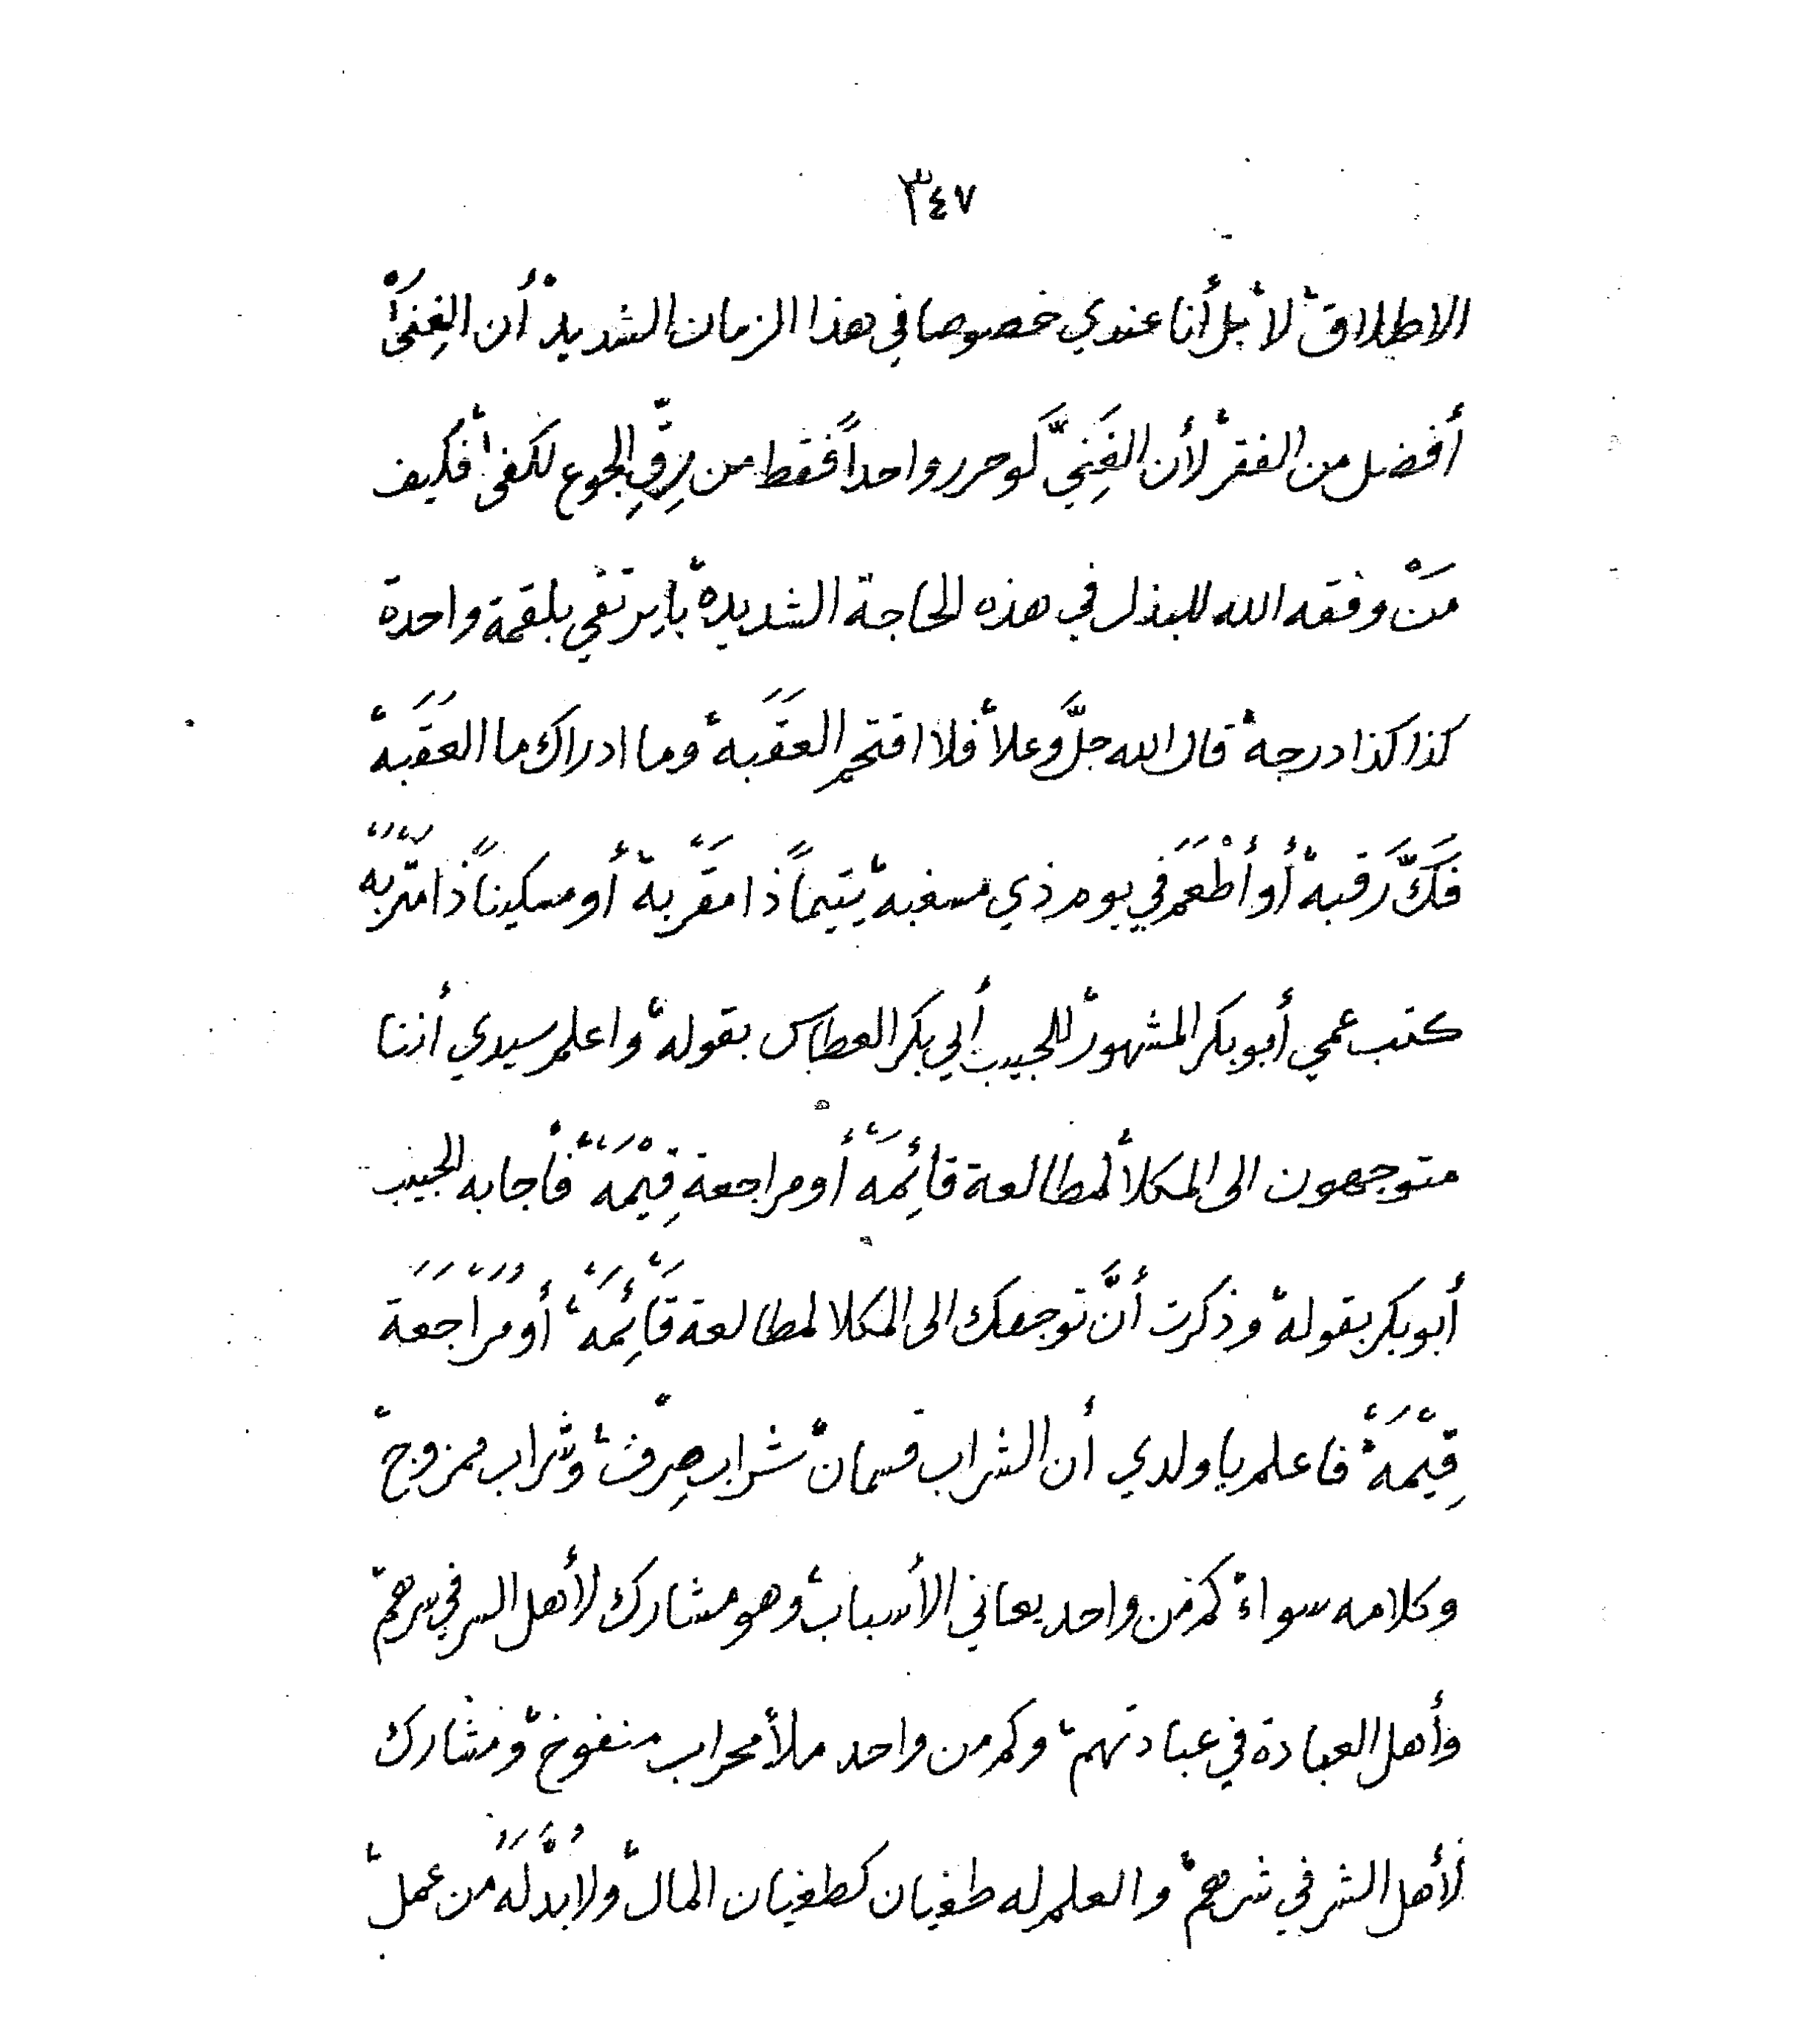 ٣٤٧
الاطلاق، لا، بل أنا عندي خصوصا في هذا الزمان الشديد، أن الغِنَى
أفضل من الفقر، لأن الغَنِيَّ لو حرر واحداً فقط من رِقِّ الجوع لكفى، فكيف
مَنْ وفقه الله للبذل في هذه الحاجة الشديدة، بايرتقي بلقمة واحدة
كذا كذا درجة، قال الله جلَّ وعلا، فلا اقتحم العَقَبة، وما ادراك ما العَقَبة،
فَكَّ رَقبة، أو أَطْعَمَ في يوم ذي مسغبة، يتيماً ذا مقرَبة، أو مسكيناً ذا متربه
كتب عمي أبو بكر المشهور، للحبيب أبي بكر العطاس بقوله، واعلم سيدي أننا
متوجهون الى المكلا، لمطالعة قائِمَه، أو مراجعة قِيْمَه، فأجابه الحبيب
أبو بكر بقوله، وذكرت أنَّ توجهك الى المكلا لمطالعة قَائِمَه، أو مُرَاجَعَة
قِيْمَه، فاعلم يا ولدي أن الشراب قسمان، شراب صِرْف، وشراب ممزوج،
وكلامه سواء، كم من واحد يعاني الأسباب، وهو مشارك لأهل السر في سرهم،
وأهل العبادة في عبادتهم، وكم من واحد ملأ محراب منفوخ، ومشارك
لأهل الشر في شرهم، والعلم له طغيان كطغيان المال، ولا بُدَّ لَهُ من عمل،